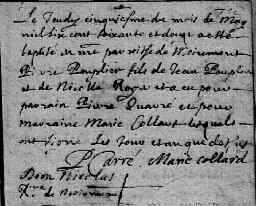 Le Jeudy cinquiesme du mois de May
mil six cent soixante et douze a esté
baptisé en nre paroisse de
Pierre Pouplier fils de Jean Pouplier
et de Nicolle et a eu pour
parrain Pierre Quarré et pour
marraine Marie Collart lesquels
ont signé les jour et an que dessus
P Carré Marie Collard
Dom Nicolas
de